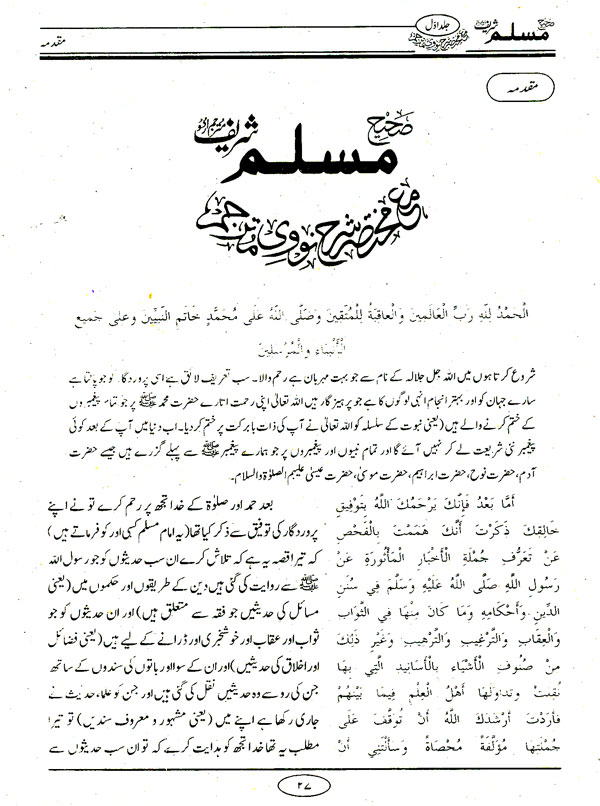 صحیح مسلم شریف
جلد اوّل
مع مختصر شرح نووی مترجم
مقدمہ
مقدمہ
صحیح
مسلم
شریف مترجم اردو
مع مختصر شرح نووی مترجم
الْحَمْدُ لِلّٰهِ رَبِّ الْعَالَمِينَ وَالْعَاقِبَةُ لِلْمُتَّقِينَ وَصَلَّى اللّٰهُ عَلَى مُحَمَّدٍ خَاتَمِ النَّبِيِّينَ وعلى جَمِيعِ
الْأَنْبِيَاءِ وَالْمُرْسَلِينَ
شروع کرتا ہوں میں اللہ جل جلالہ کے نام سے جو بہت مہربان ہے رحم والا۔ سب تعریف لائق ہے اسی پروردگار کو جو پالتا ہے
سارے جہان کو اور بہتر انجام انہی لوگوں کا ہے جو پرہیزگار ہیں اللہ تعالیٰ اپنی رحمت اتارے حضرت محمد ﷺ پر جو تمام پیغمبروں
کے ختم کرنے والے ہیں (یعنی نبوت کے سلسلہ کو اللہ تعالیٰ نے آپ کی ذات بابرکت پر ختم کر دیا۔ اب دنیا میں آپ کے بعد کوئی
پیغمبر نئی شریعت لے کر نہیں آئے گا اور تمام نبیوں اور پیغمبروں پر جو ہمارے پیغمبر ﷺ سے پہلے گزرے ہیں جیسے حضرت
آدم، حضرت نوح، حضرت ابراہیم، حضرت موسیٰ، حضرت عیسیٰ علیہم الصلوٰۃ والسلام۔
أَمَّا بَعْدُ فَإِنَّكَ يَرْحَمُكَ اللّٰهُ بِتَوْفِيقِ
خَالِقِكَ ذَكَرْتَ أَنَّكَ هَمَمْتَ بِالْفَحْصِ
عَنْ تَعَرُّفِ جُمْلَةِ الْأَخْبَارِ الْمَأْثُورَةِ عَنْ
رَسُولِ اللّٰهِ صَلَّى اللّٰهُ عَلَيْهِ وَسَلَّمَ فِي سُنَنِ
الدِّينِ وَأَحْكَامِهِ وَمَا كَانَ مِنْهَا فِي الثَّوَابِ
وَالْعِقَابِ وَالتَّرْغِيبِ وَالتَّرْهِيبِ وَغَيْرِ ذَلِكَ
مِنْ صُنُوفِ الْأَشْيَاءِ بِالْأَسَانِيدِ الَّتِي بِهَا
نُقِلَتْ وَتَدَاوَلَهَا أَهْلُ الْعِلْمِ فِيمَا بَيْنَهُمْ
فَأَرَدْتَ أَرْشَدَكَ اللّٰهُ أَنْ تُوَقَّفَ عَلَى
جُمْلَتِهَا مُؤَلَّفَةً مُحْصَاةً وَسَأَلْتَنِي أَنْ
بعد حمد اور صلوٰۃ کے خدا تجھ پر رحم کرے تو نے اپنے
پروردگار کی توفیق سے ذکر کیا تھا (یہ امام مسلم کسی اور کو فرماتے ہیں)
کہ تیرا قصہ یہ ہے کہ تلاش کرے ان سب حدیثوں کو جو رسول اللہ
ﷺ سے روایت کی گئی ہیں دین کے طریقوں اور حکموں میں (یعنی
مسائل کی حدیثیں جو فقہ سے متعلق ہیں) اور ان حدیثوں کو جو
ثواب اور عقاب اور خوشخبری اور ڈرانے کے لیے ہیں (یعنی فضائل
اور اخلاق کی حدیثیں) اور ان کے سوا اور باتوں کی سندوں کے ساتھ
جن کی رو سے وہ حدیثیں نقل کی گئی ہیں اور جن کو علماء حدیث نے
جاری رکھا ہے اپنے میں (یعنی مشہور و معروف سندیں) تو تیرا
مطلب یہ تھا خدا تجھ کو ہدایت کرے کہ تو ان سب حدیثوں سے
۲۷